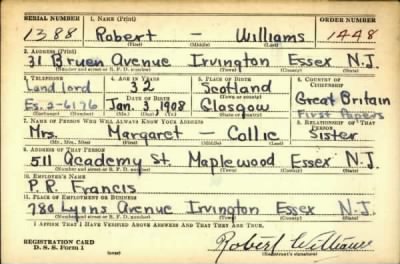 SERIAL NUMBER 1. NAME (Print) ORDER NUMBER
1388 Robert — Williams 1448
(First) (Middle) (Last)
2. ADDRESS (Print)
31 Bruen Avenue Irvington Essex N.J.
(Number and street or R. F. D. number) (Town) (County) (State)
3. TELEPHONE 4. AGE IN YEARS 5. PLACE OF BIRTH 6. COUNTRY OF CITIZENSHIP
Landlord 32 Scotland Great Britain
DATE OF BIRTH (Town or county)
Es. 2-6176 Jan. 3, 1908 Glasgow First Papers
(Exchange) (Number) (Mo.) (Day) (Yr.) (State or country)
7. NAME OF PERSON WHO WILL ALWAYS KNOW YOUR ADDRESS 8. RELATIONSHIP OF THAT PERSON
Mrs. Margaret — Collie Sister
(Mr., Mrs., Miss) (First) (Middle) (Last)
9. ADDRESS OF THAT PERSON
511 Academy St. Maplewood Essex N.J.
(Number and street or R. F. D. number) (Town) (County) (State)
10. EMPLOYER'S NAME
P. R. Francis
11. PLACE OF EMPLOYMENT OR BUSINESS
780 Lyons Avenue Irvington Essex N.J.
(Number and street or R. F. D. number) (Town) (County) (State)
I AFFIRM THAT I HAVE VERIFIED ABOVE ANSWERS AND THAT THEY ARE TRUE.
REGISTRATION CARD
D. S. S. Form 1
Robert Williams
(Registrant's signature)